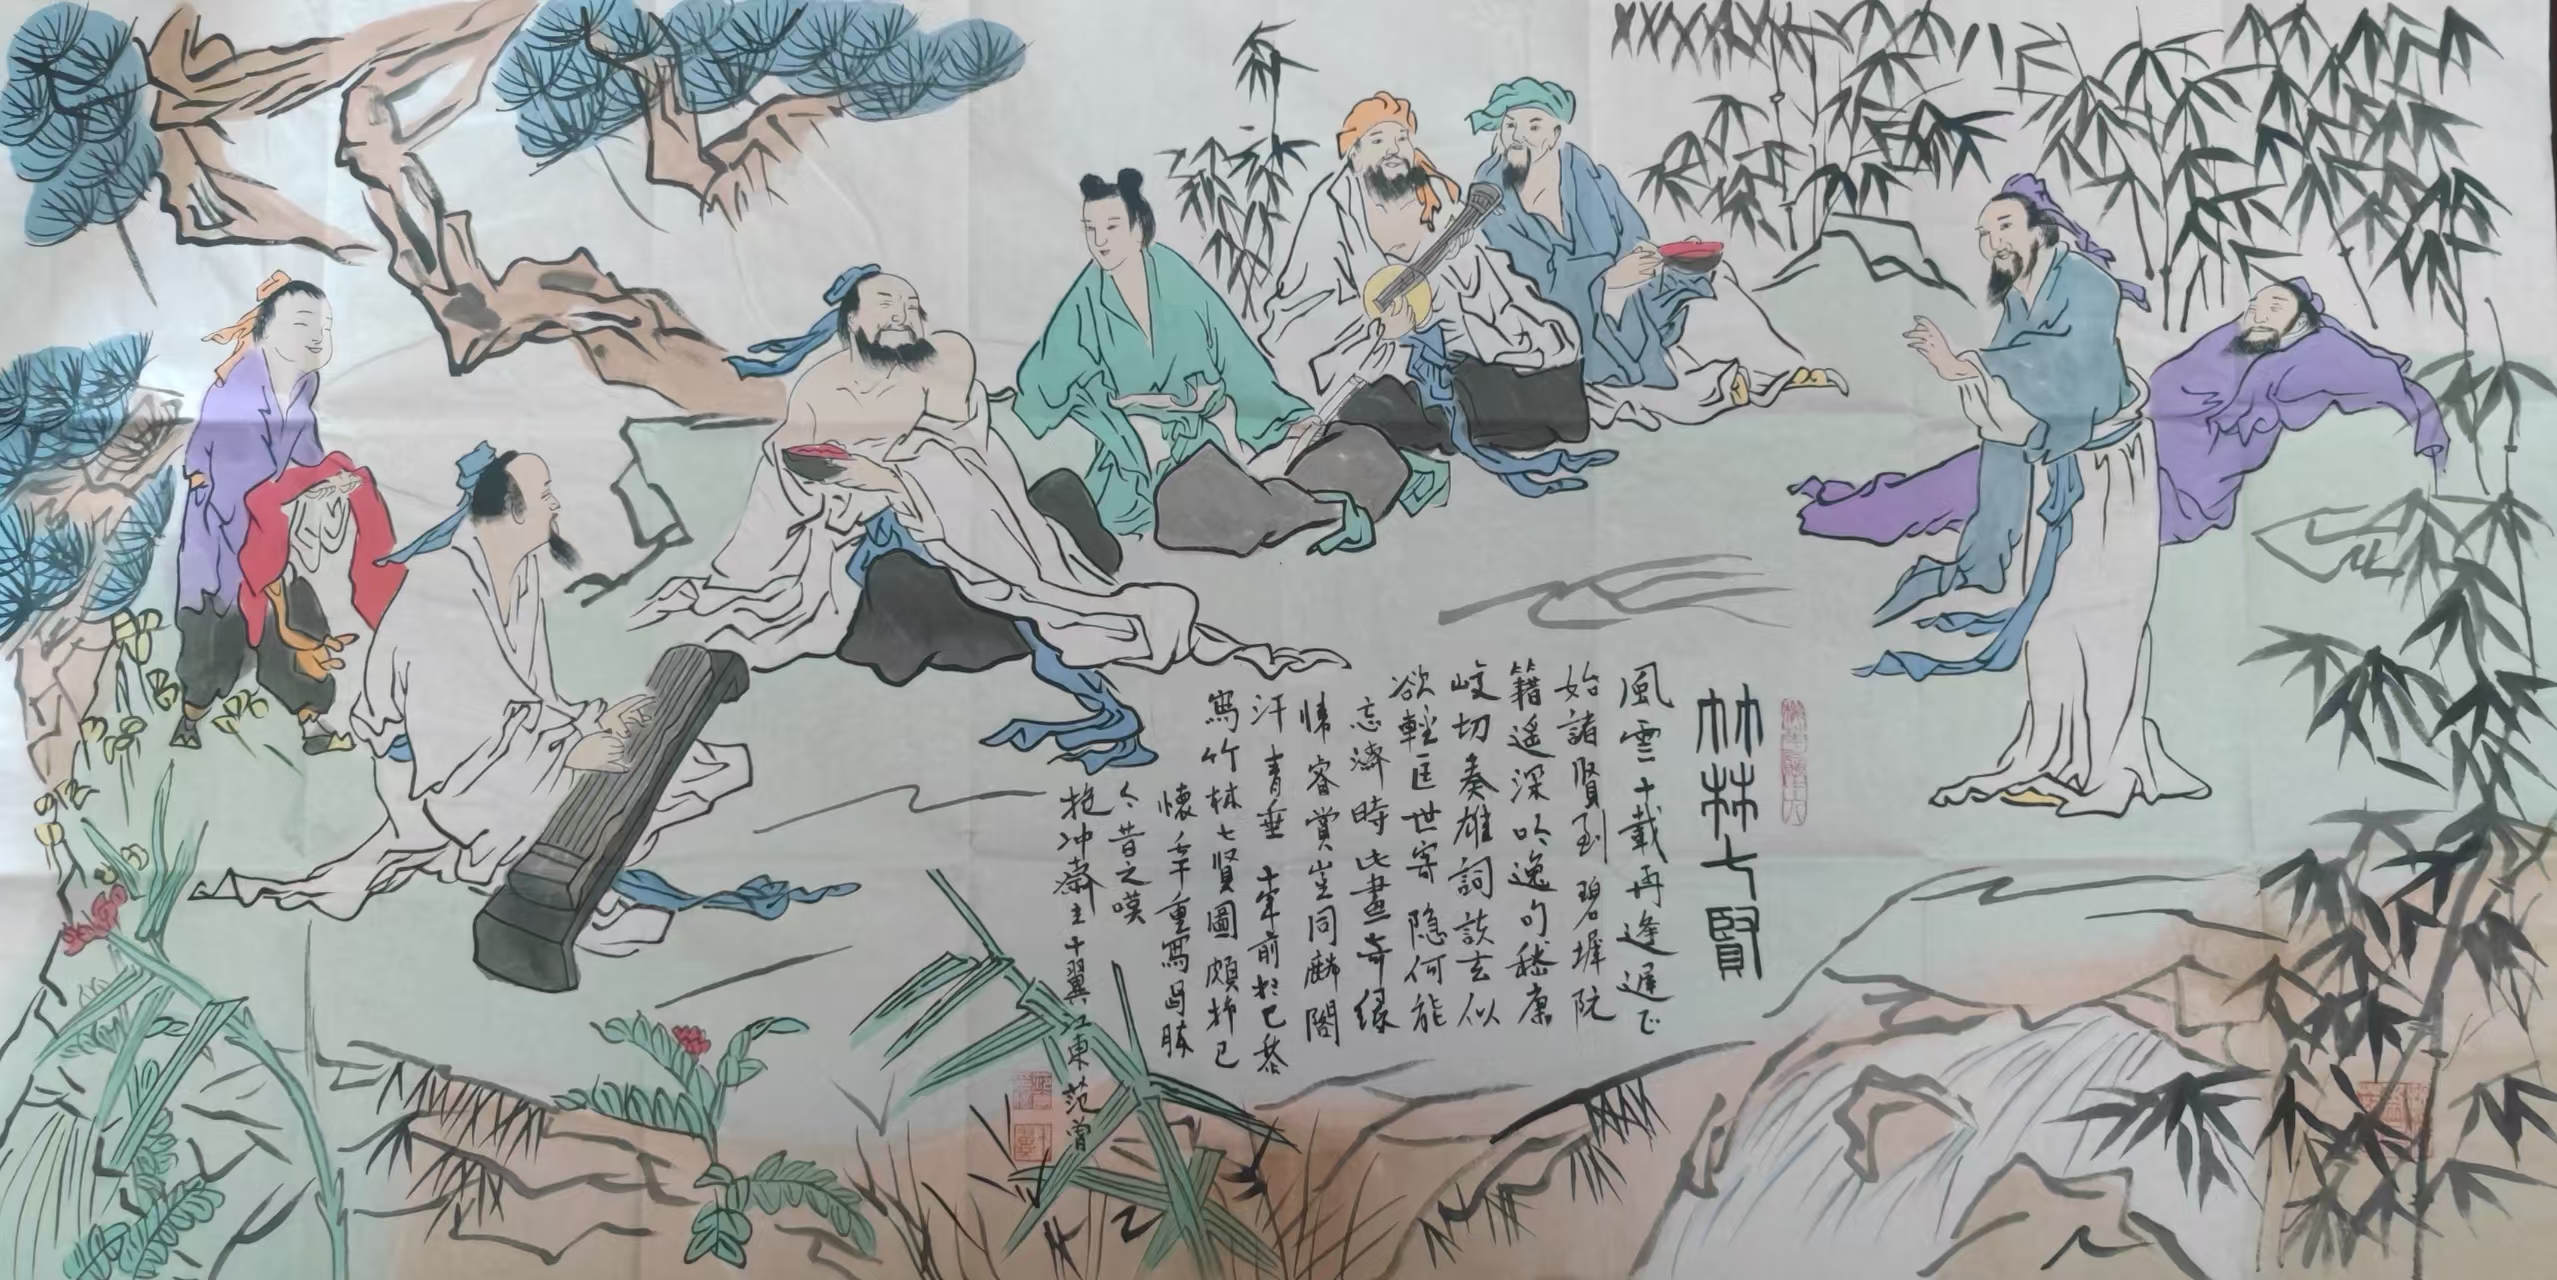 竹林七賢
風雲十載再逢遲正
始諸賢到碧墀阮
籍遙深吟逸句嵇康
峻切奏雄詞談玄似
欲輕匡世寄隐何能
忘濟時此畫奇缘
情客賞豈同麟閣
汗青垂 十年前於已
寫竹林七賢圖頗抒己
懷壬午重寫曷勝
今昔之嘆
抱冲齋主十翼江東范曾